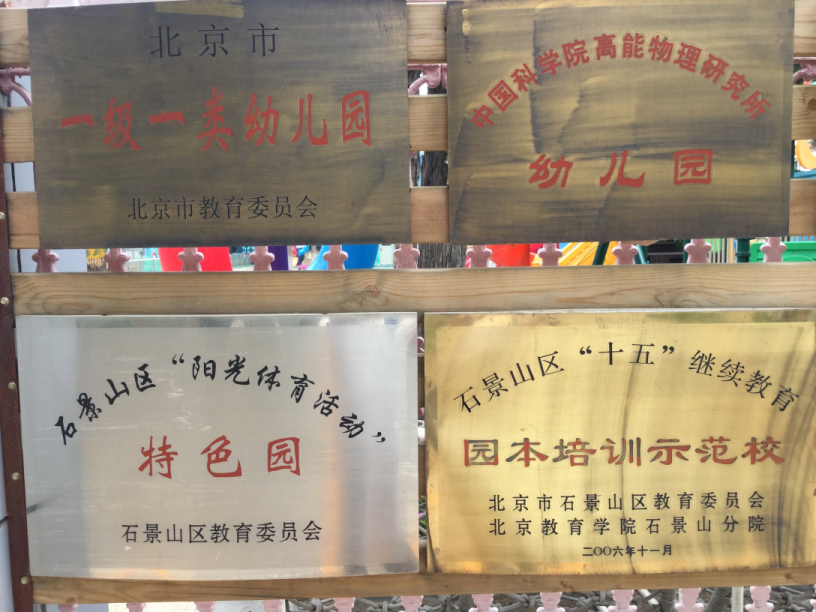 北京市
一级一类幼儿园
北京市教育委员会
中国科学院高能物理研究所
幼儿园
石景山区“阳光体育活动”
特色园
石景山区教育委员会
石景山区“十五”继续教育
园本培训示范校
北京市石景山区教育委员会
北京教育学院石景山分院
二〇〇六年十一月